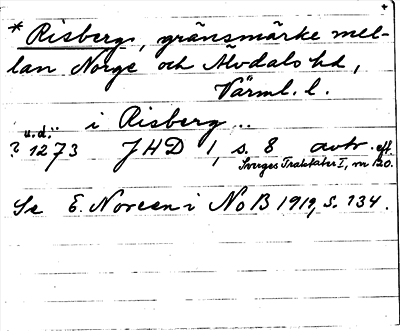 * Risberg, gränsmärke mel-
lan Norge och Älvdals hd,
Värml. l.
i Risberg ...
u.d.:
? 1273 JHD 1, s. 8 avtr. eft.
Sveriges Traktater I, nr 120.
Se E. Noreen i NoB 1919, s. 134.